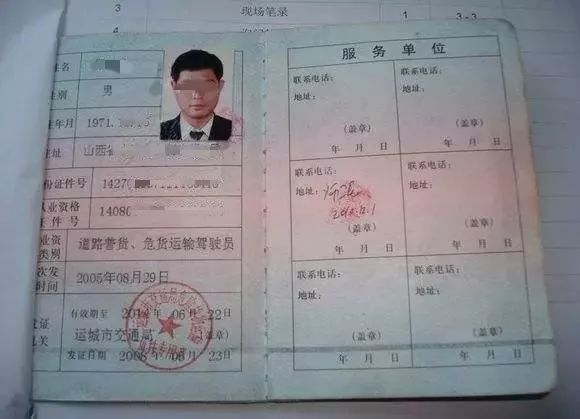 3 现场笔录 1 3-3
姓名
性别 男
出生年月 1971.
住址 山西省
身份证件号 1427
从业资格
证件号 14080
从业资
格类别 道路普货、危货运输驾驶员
初次发
证时间 2005年08月29日
有效期至 06月22日
发证
机关 运城市交通局 (盖章)
发证日期 2008年06月23日
服务单位
联系电话: 联系电话:
地址: 地址:
(盖章) (盖章)
年 月 日 年 月 日
联系电话: 联系电话:
地址: 地址:
(盖章) (盖章)
年 月 日 年 月 日
联系电话: 联系电话:
地址: 地址:
(盖章) (盖章)
年 月 日 年 月 日